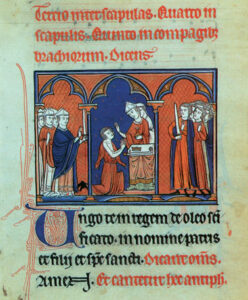 Tercio inter scapulas. Quarto in
scapulis. Quinto in compagib;
brachiorum. Dicens.
Ungo te in regem de oleo sci
ficato. in nomine patris
et filii et sps sancti. Dicant omnes.
Amen. Et cantetur hec antiph.